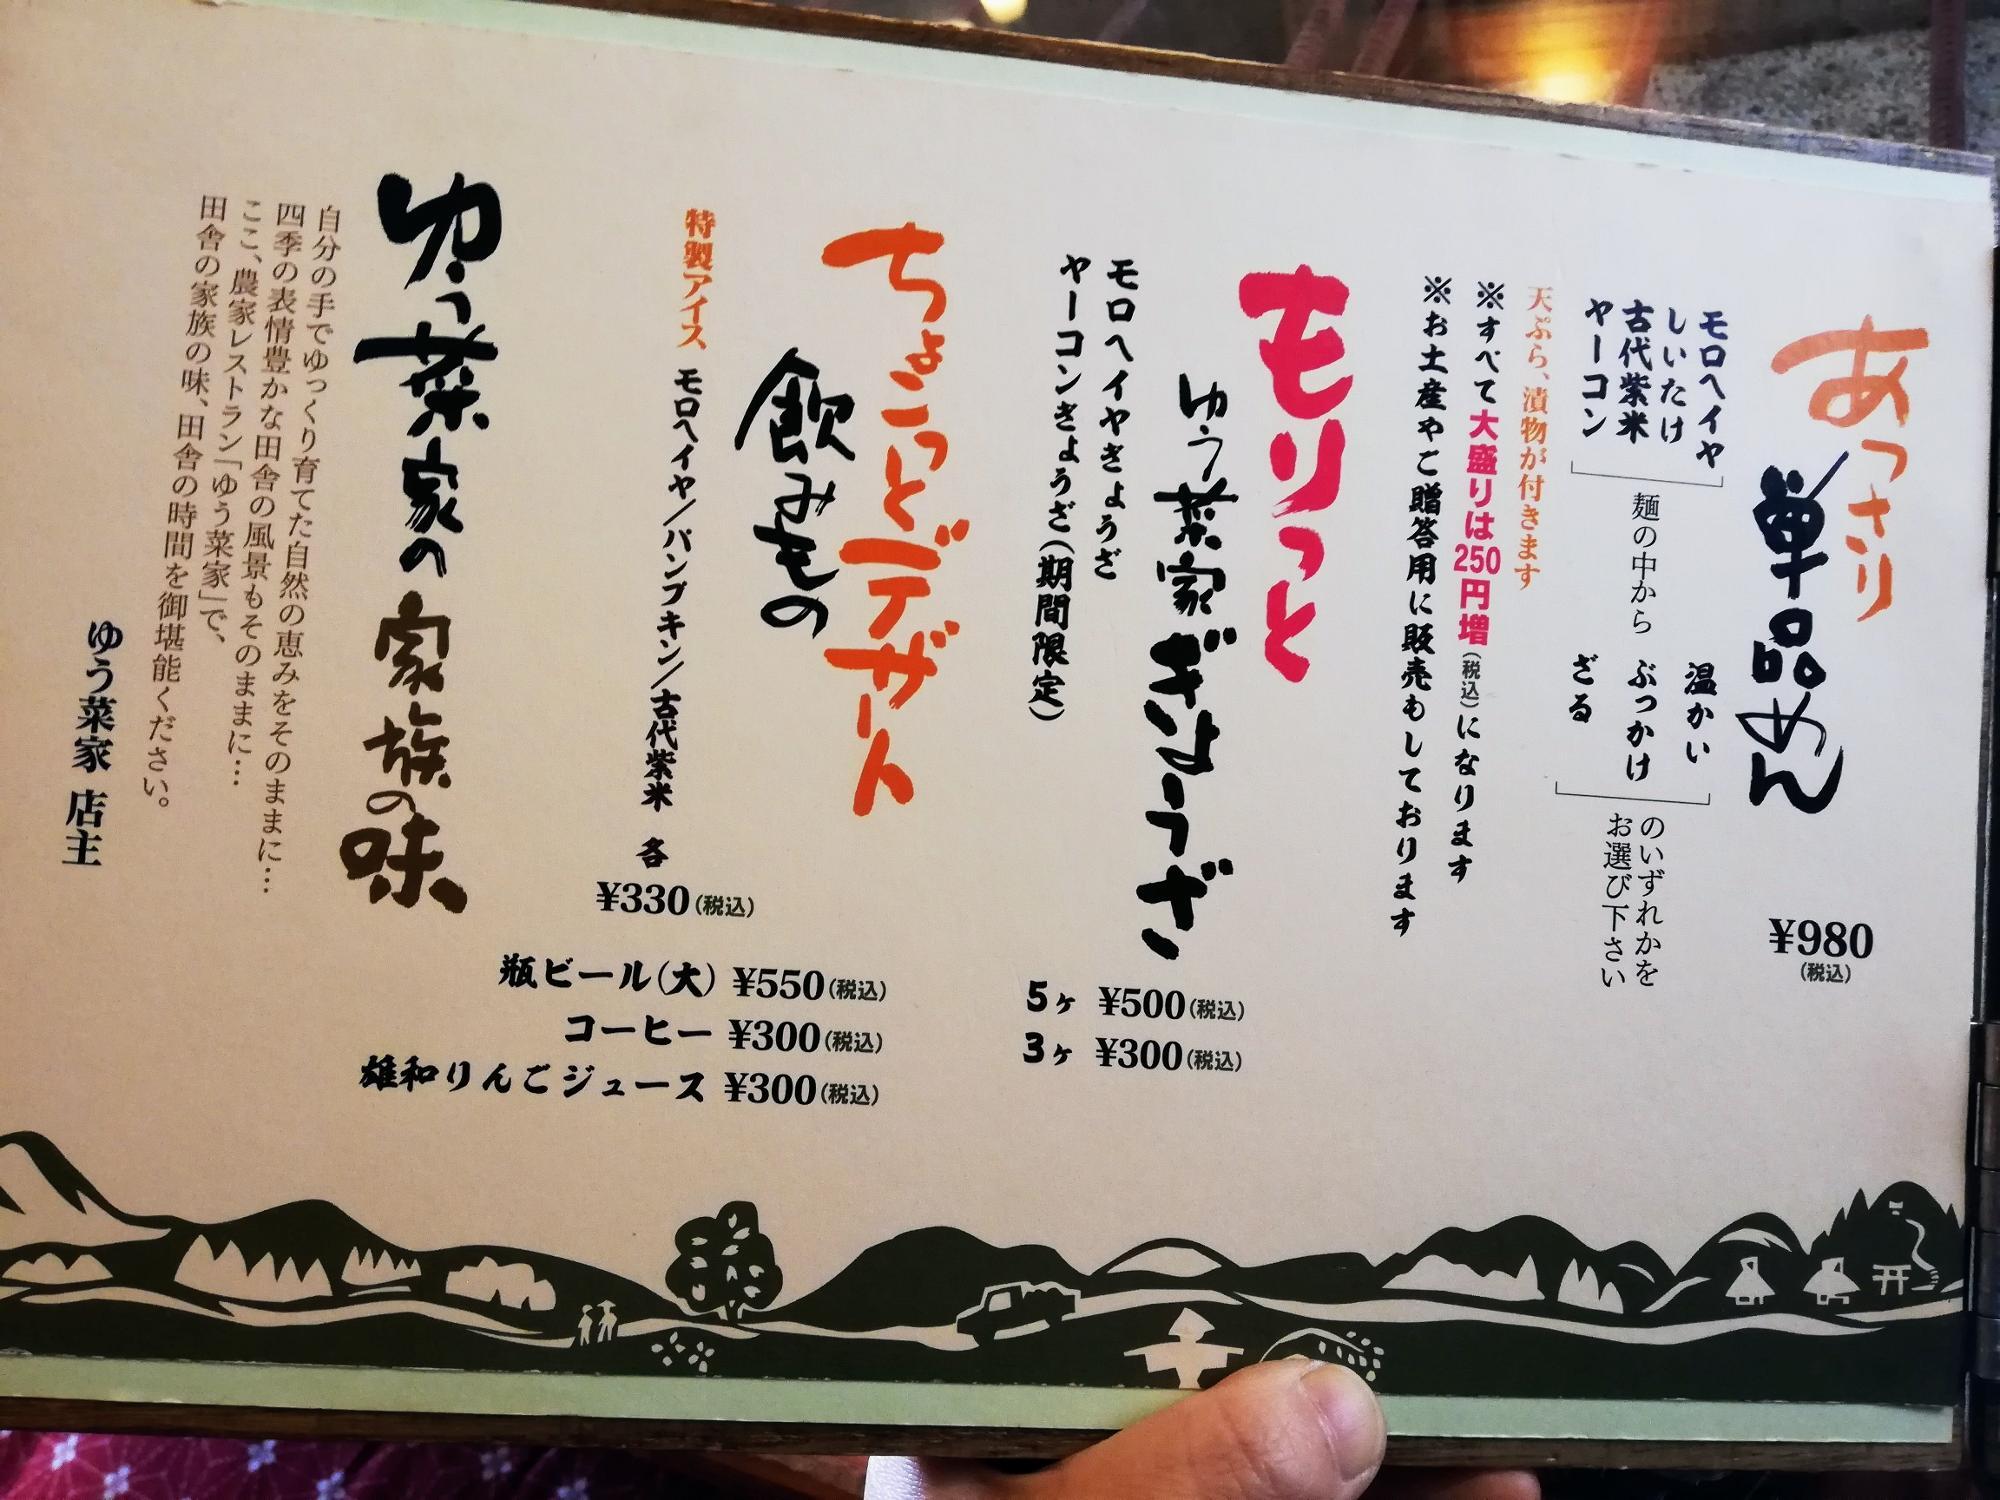 あっさり
単品めん
¥980
(税込)
モロヘイヤ
しいたけ
古代紫米
ヤーコン
麺の中から
温かい
ぶっかけ
ざる
のいずれかを
お選び下さい
天ぷら、漬物が付きます
※すべて大盛りは250円増(税込)になります
※お土産やご贈答用に販売もしております
もりっと
ゆう菜家ぎょうざ
モロヘイヤぎょうざ
ヤーコンぎょうざ(期間限定)
5ヶ ¥500(税込)
3ヶ ¥300(税込)
ちょこっとデザート
飲みもの
特製アイス モロヘイヤ/パンプキン/古代紫米 各
¥330(税込)
瓶ビール(大) ¥550(税込)
コーヒー ¥300(税込)
雄和りんごジュース ¥300(税込)
ゆう菜家の家族の味
自分の手でゆっくり育てた自然の恵みをそのままに…
四季の表情豊かな田舎の風景もそのままに…
ここ、農家レストラン「ゆう菜家」で、
田舎の家族の味、田舎の時間を御堪能ください。
ゆう菜家 店主